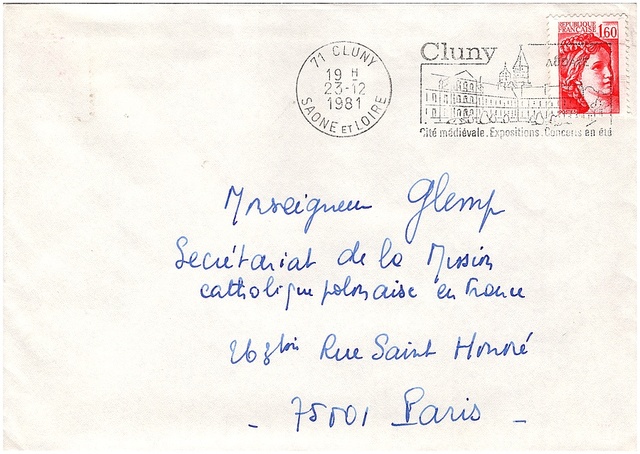 71 CLUNY
19 H
23-12
1981
SAONE ET LOIRE
Cluny
ABBAYE
Cité médiévale. Expositions. Concerts en été
REPUBLIQUE
FRANÇAISE
1,60
Monseigneur Glemp
Secrétariat de la Mission
catholique polonaise en France
263 bis Rue Saint Honoré
- 75001 Paris -